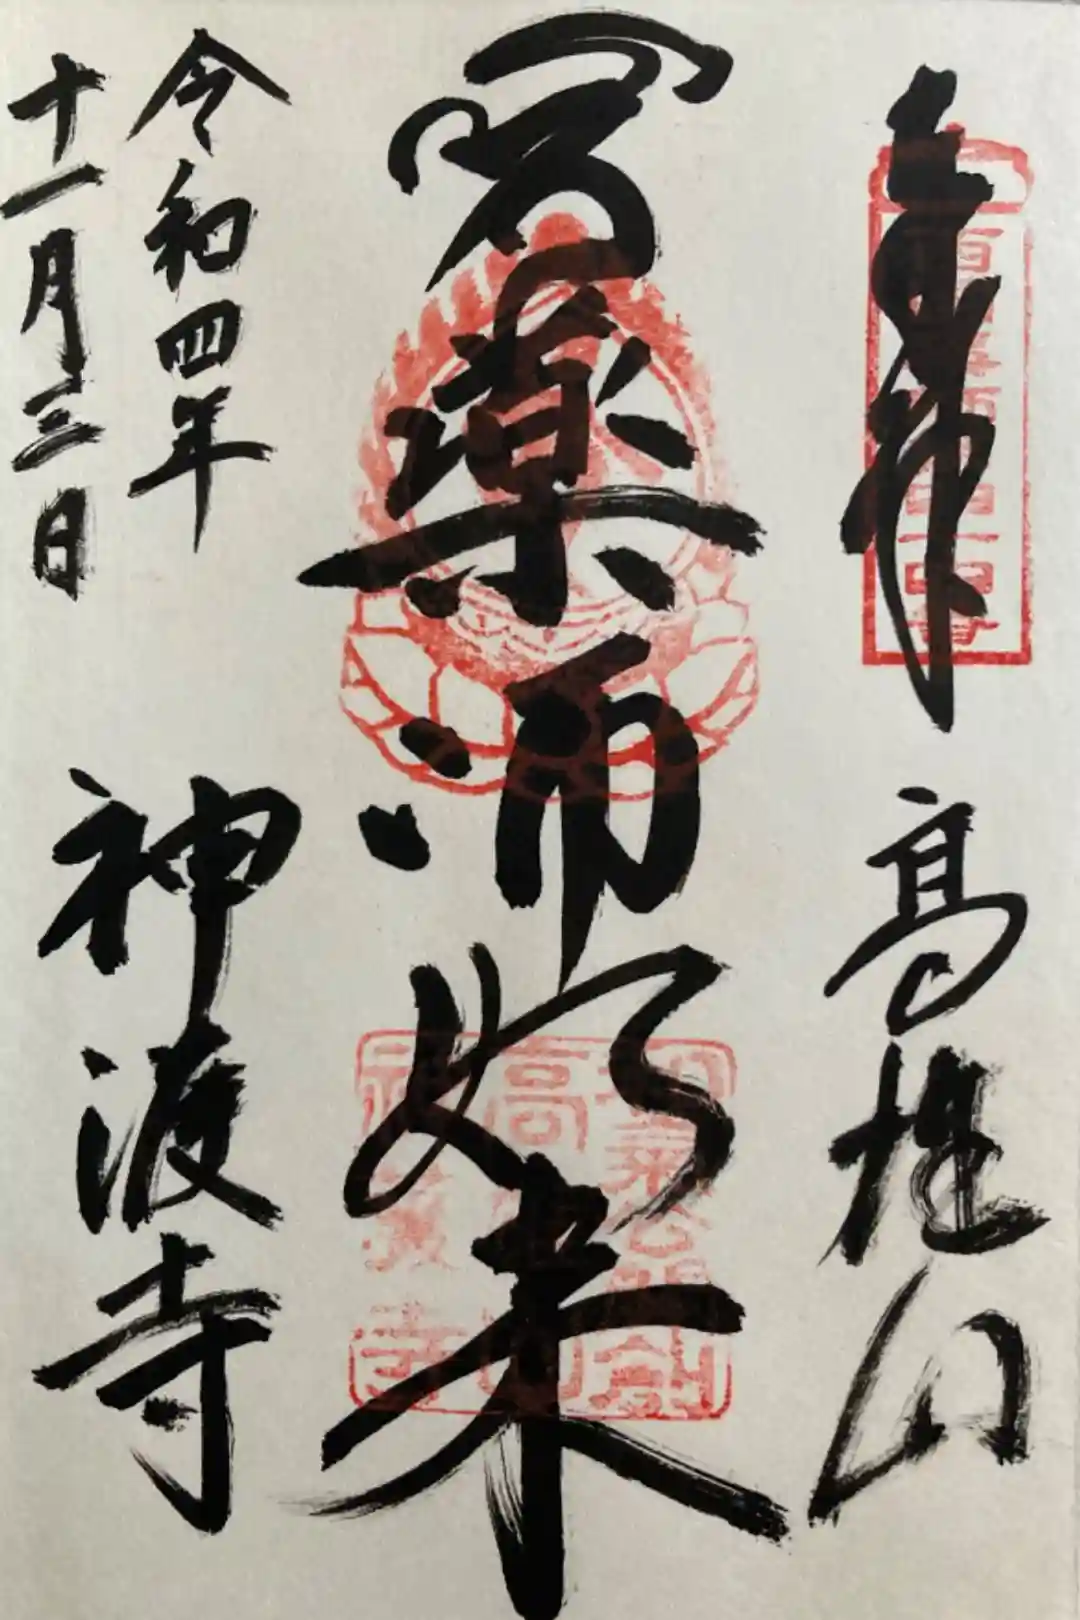 奉拝
高雄山
薬師如来
令和四年
十一月三日
神護寺